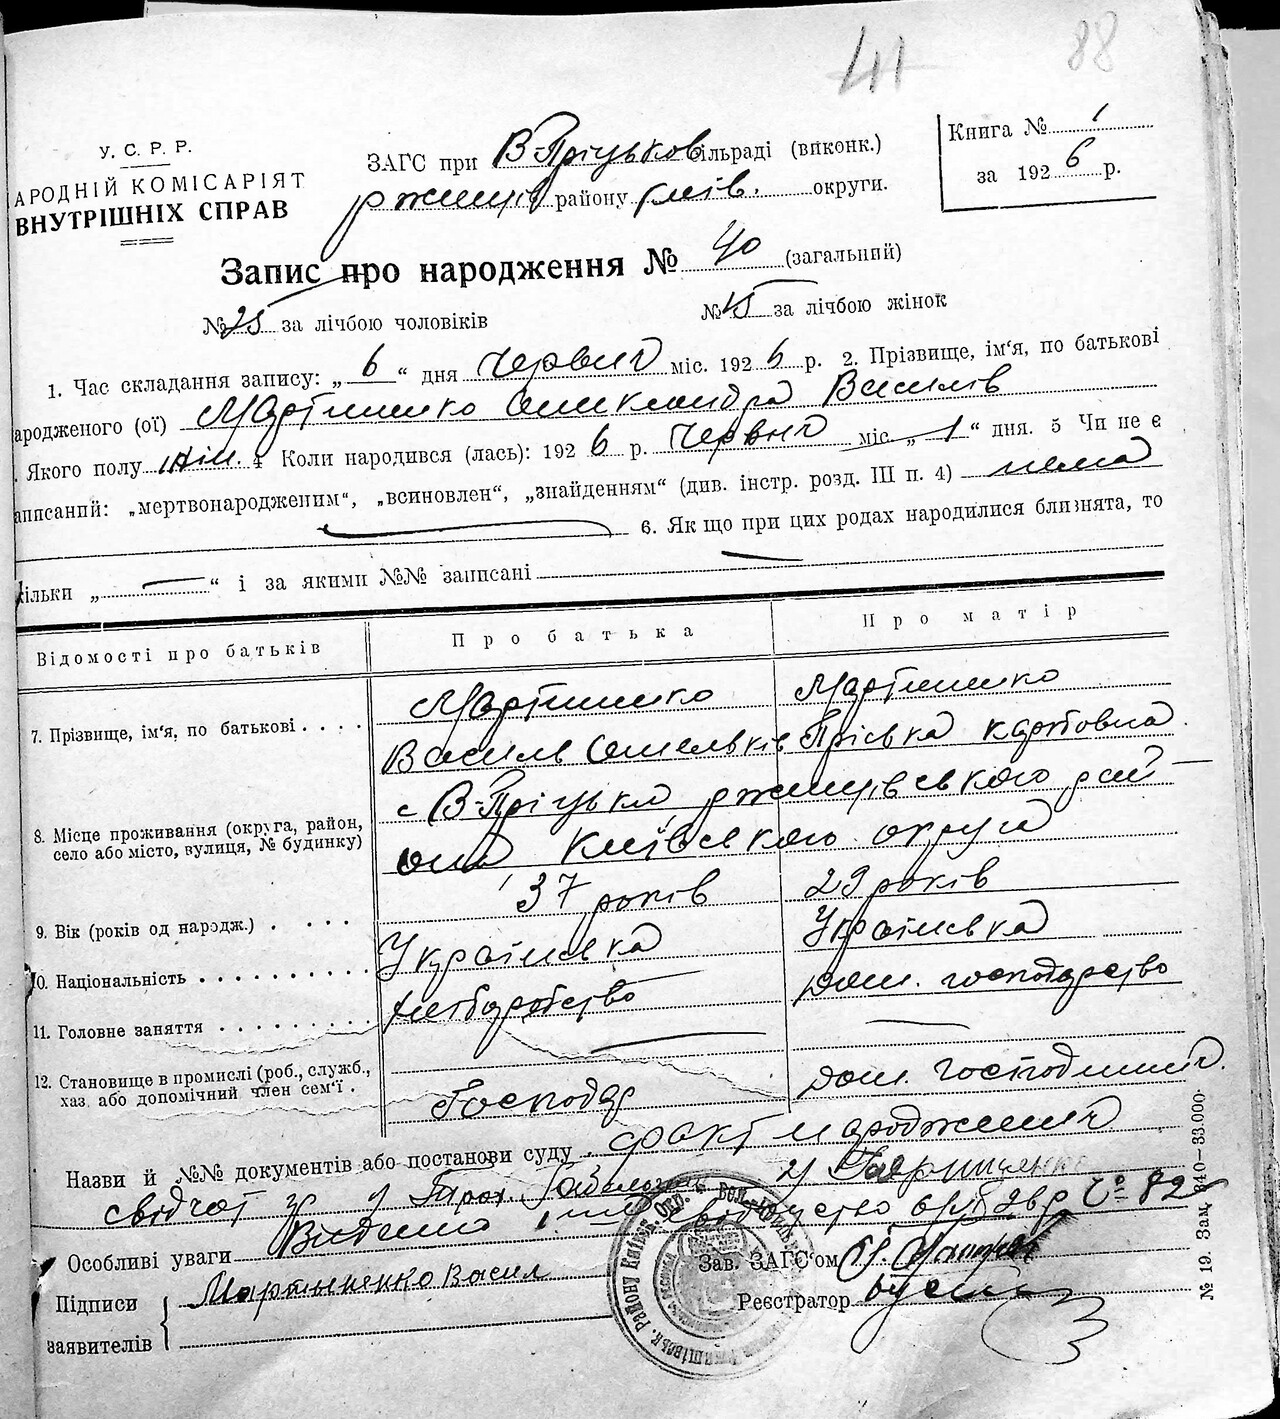 41 88
У. С. Р. Р.
АРОДНІЙ КОМІСАРІЯТ
ВНУТРІШНІХ СПРАВ
ЗАГС при В-Пріцьков ільраді (виконк.)
ржищів району Київ. округи.
Книга № 1
за 1926 р.
Запис про народження № 40 (загальний)
№ 25 за лічбою чоловіків № 15 за лічбою жінок
1. Час складання запису: „6“ дня Червня міс. 1926 р. 2. Прізвище, ім‘я, по батькові
ародженого (ої) Мартиненко Олександра Василів
. Якого полу жін. 4 Коли народився (лась): 1926 р. Червня міс. „1“ дня. 5 Чи не є
аписаний: „мертвонародженим“, „всиновлен“, „знайденням“ (див. інстр. розд. III п. 4) нема
6. Як що при цих родах народилися близнята, то
кільки „ — “ і за якими №№ записані —
Відомості про батьків Про батька Про матір
7. Прізвище, ім‘я, по батькові . . . . Мартиненко Василь Омельків Мартиненко Пріська Карповна
8. Місце проживання (округа, район, село або місто, вулиця, № будинку) с В-Пріцьки, ржищівського рай-
она Київського округа
9. Вік (років од народж.) . . . . . 37 років 29 років
10. Національність . . . . . . . . . . Українка Українка
11. Головне заняття . . . . . . . . . Хліборобство Дом. господарство
12. Становище в промислі (роб., служб., хаз. або допомічний член сем‘ї . Господар Дом. господиня
Назви й №№ документів або постанови суду. факт народження
свідчат гр
Особливі уваги Видано свідоцтво № 82
Підписи заявителів Мартыненко Васил
Зав. ЗАГС‘ом
Реєстратор
№ 19. Зам. 640—83.000.